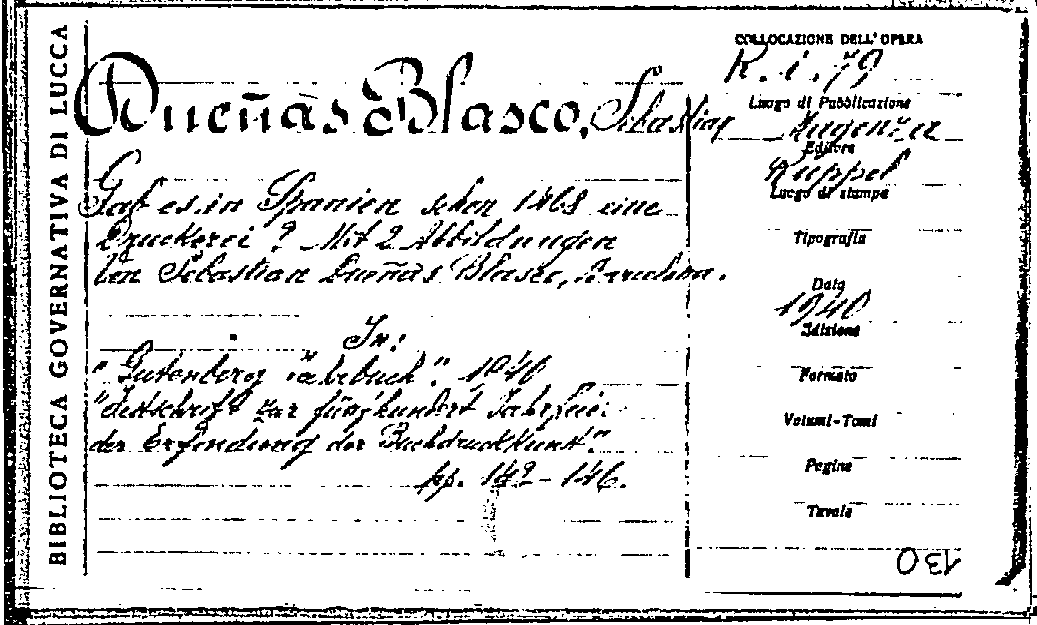 BIBLIOTECA GOVERNATIVA DI LUCCA
Dueñas Blasco, Sebastian
Gab es in Spanien schon 1468 eine
Druckerei? Mit 2 Abbildungen
Sebastian Dueñas Blasco, Barcelona.
In:
"Gutenberg Jahrbuch". 1940
"Festschrift zur fünfhundert Jahrfeier
der Erfindung der Buchdruckkunst".
pp. 142-146.
COLLOCAZIONE DELL'OPERA
R. i. 79
Luogo di Pubblicazione
Magonza
Editore
Ruppel
Luogo di stampa
Tipografia
Data
1940
Edizione
Formato
Volumi-Tomi
Pagine
Tavole
130